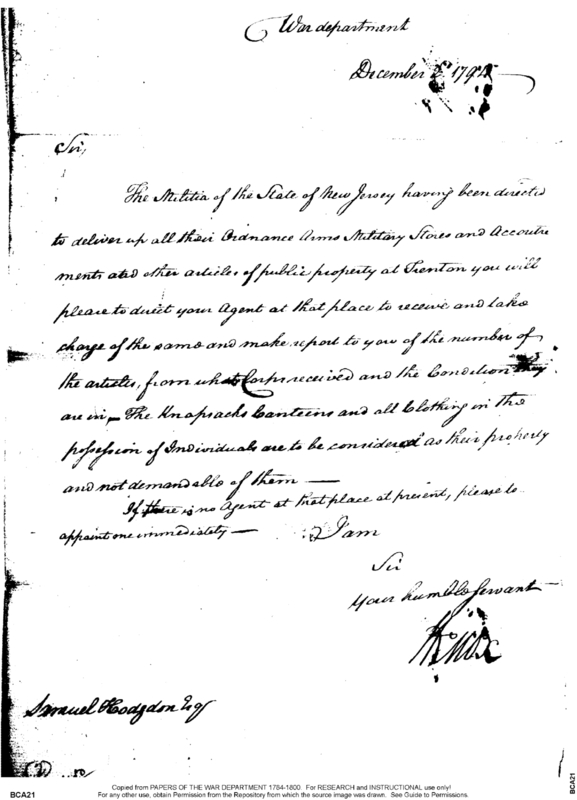 War department
December 2d 179
Sir,
The Militia of the State of New Jersey having been directed
to deliver up all their Ordnance Arms Military Stores and Accoutre
ments and other articles of public property at Trenton you will
please to direct your Agent at that place to receive and take
charge of the same and make report to you of the number of
the articles, from what Corps received and the Condition they
are in,— The Knapsacks Canteens and all Clothing in the
possession of Individuals are to be considered as their property
and not demandable of them —
If there is no Agent at that place at present, please to
appoint one immediately —
I am
Sir
Your humble Servant
HKnox
Samuel Hodgdon Esq
Copied from PAPERS OF THE WAR DEPARTMENT 1784-1800. For RESEARCH and INSTRUCTIONAL use only!
For any other use, obtain Permission from the Repository from which the source image was drawn. See Guide to Permissions.
BCA21
BCA21